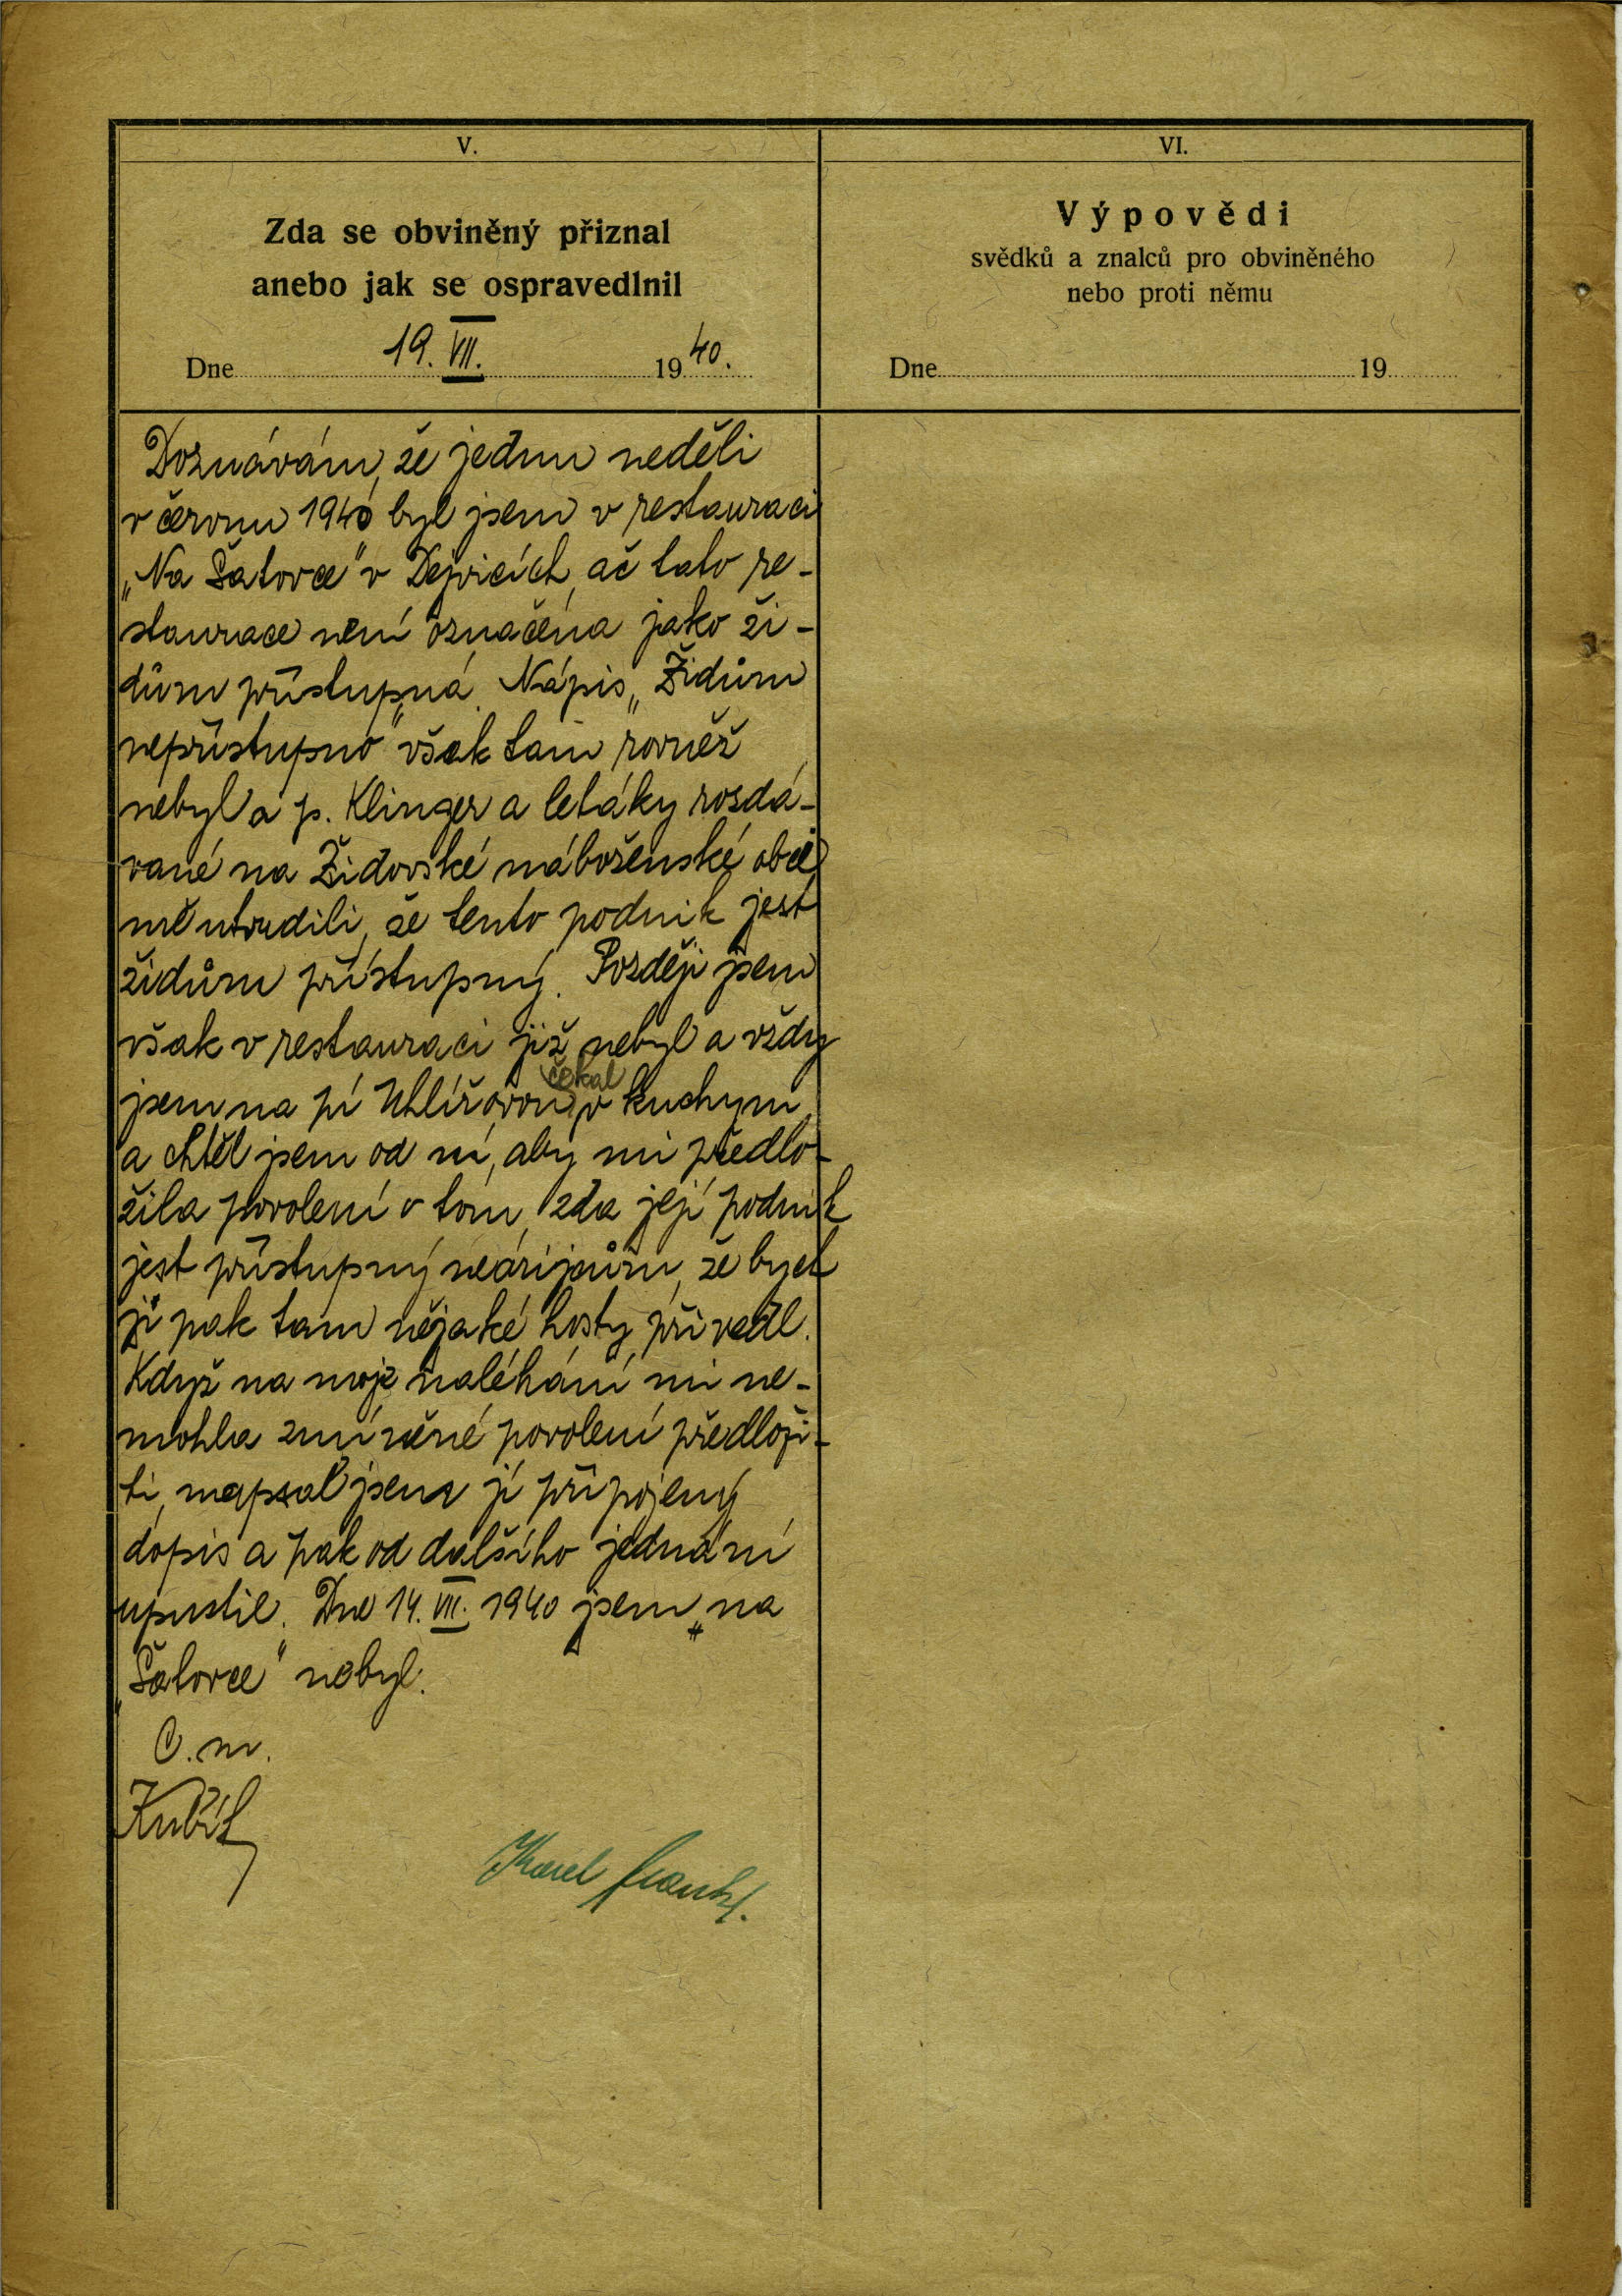 V.
Zda se obviněný přiznal
anebo jak se ospravedlnil
Dne 19. VII. 1940.
VI.
Výpovědi
svědků a znalců pro obviněného
nebo proti němu
Dne 19
Doznávám, že jednu neděli
v červnu 1940 byl jsem v restauraci
„Na Šatovce" v Dejvicích, ač tato re-
staurace není označena jako ži-
dům přístupná. Nápis „Židům
nepřístupno" však tam rovněž
nebyl a p. Klinger a letáky rozdá-
vané na Židovské náboženské obci
mě utvrdili, že tento podnik jest
židům přístupný. Později jsem
však v restauraci již nebyl a vždy
čekal
jsem na pí Uhlířovou v kuchyni
a chtěl jsem od ní, aby mi předlo-
žila povolení o tom, zda její podnik
jest přístupný neárijcům, že bych
jí pak tam nějaké hosty přivedl.
Když na moje naléhání mi ne-
mohla zmíněné povolení předloži-
ti, napsal jsem jí připojený
dopis a pak od dalšího jednání
upustil. Dne 14. VII. 1940 jsem „na
„Šatovce" nebyl.
O. m.
Kubát
Karel Frankl.